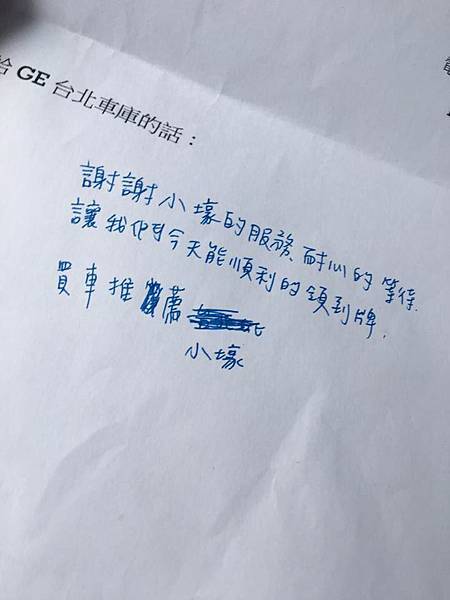 給 GE 台北車庫的話：
謝謝小壕的服務、耐心的等待.
讓我們今天能順利的領到牌.
買車推薦
小壕